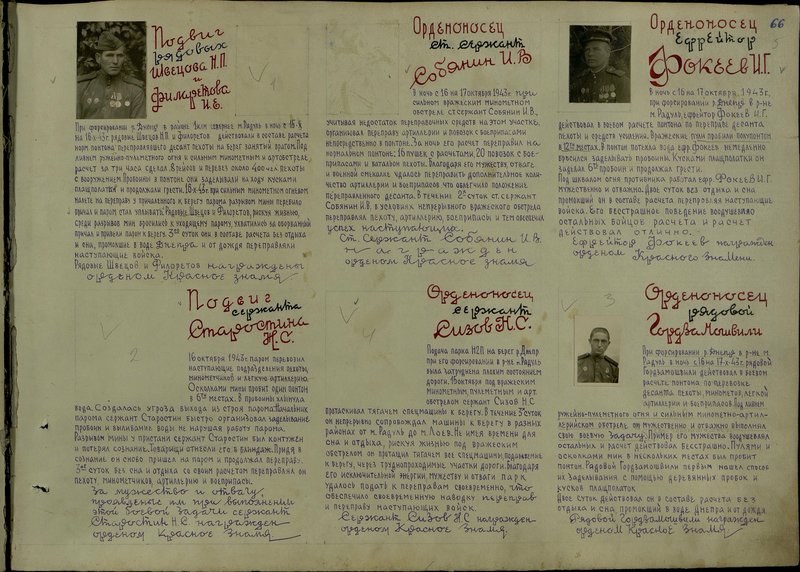 66
Подвиг
рядовых
Швецова Н.П.
и
Филаретова
И.Е.
1
При форсировании р. Днепр в районе 1км севернее м. Радуль в ночь с 15.X
на 16.X-43г. рядовые Швецов Н.П. и Филоретов действовали в составе расчета
норм. понтона переправляющего десант пехоты на берег занятый врагом. Под
ливнем ружейно-пулеметного огня и сильным минометным и артобстрелом,
расчет за три часа сделал 8 рейсов и перевез около роты пехоты
с вооружением. Пробоины в понтоне они заделывали на ходу кусками
плащпалатки и продолжали грести. 16.X-43г. при сильном минометном огневом
налете на переправу у причаленного к берегу парома разрывом мины перебило
причал и паром стал уплывать. Рядовые Швецов и Филоретов, рискуя жизнью,
среди разрывов мин бросились к уходящему парому, ухватились за оборванный
причал и привели паром к берегу. 3ое суток они в составе расчета без отдыха
и сна, промокшие в воде Днепра и от дождя переправляли
наступающие войска.
Рядовые Швецов и Филоретов награждены
орденом Красное знамя
Орденоносец
ст. сержант
Собянин И.В
В ночь с 16 на 17 октября 1943г. при
сильном вражеском минометном
обстреле ст. сержант Собянин И.В.,
учитывая недостаток переправочных средств на этом участке,
организовал переправу артиллерии и повозок с боеприпасами
непосредственно в понтоне. За ночь его расчет переправил на
нормальном понтоне: 16 пушек с расчетами, 20 повозок с бое-
припасами и батальон пехоты. Благодаря его мужеству, отваге
и военной смекалке удалось переправить дополнительное коли-
чество артиллерии и боеприпасов что облегчило положение
переправленного десанта. В течение 2х суток ст. сержант
Собянин И.В, в условиях непрерывного вражеского обстрела
переправлял пехоту, артиллерию, боеприпасы и тем обеспечил
успех наступающих.
Ст. Сержант Собянин И.В.
награжден
орденом Красное знамя
Орденоносец
Ефрейтор
Фокеев И.Г.
5
В ночь с 16 на 17 октября, 1943г.
при форсировании р. Днепра в р-не
м. Радуль, ефрейтор Фокеев И.Г.
действовал в боевом расчете понтона по переправе десанта
пехоты и средств усиления. Вражеские пули пробили полупонтон
в 12ти местах. В понтон потекла вода. Ефр. Фокеев немедленно
бросился заделывать пробоины. Кусками плащпалатки он
заделал 6ть пробоин и продолжал грести.
Под шквалом огня противника работал ефр. Фокеев И.Г.
мужественно и отважно. Двое суток без отдыха и сна
промокший он в составе расчета переправлял наступающие
войска. Его бесстрашное поведение воодушевляло
остальных бойцов расчета и расчет
действовал отлично.
Ефрейтор Фокеев награжден
орденом Красного Знамени.
Подвиг
сержанта
Старостина
Н.С.
2
16 октября 1943г. паром перевозил
наступающие подразделения пехоты,
минометчиков и легкую артиллерию.
Осколками мины пробит один понтон
в 6ти местах. В пробоины хлынула
вода. Создалась угроза выхода из строя парома. Начальник
парома сержант Старостин быстро организовал заделывание
пробоин и выливание воды не нарушая работу парома.
Разрывом мины у пристани сержант Старостин был контужен
и потерял сознание. Товарищи отнесли его в блиндаж. Придя в
сознание он снова пришел на паром и продолжал переправу.
3ое суток без сна и отдыха со своим расчетом переправлял он
пехоту, минометчиков, артиллерию и боеприпасы.
За мужество и отвагу,
проявленные им при выполнении
этой боевой задачи сержант
Старостин Н.С. награжден
орденом Красное Знамя
Орденоносец
сержант
Сизов Н.С.
4
Подача парка Н2П на берег р. Днепр
при его форсировании в р-не м. Радуль
была затруднена плохим состоянием
дороги. 15 октября под вражеским
минометным, пулеметным и арт.
обстрелом сержант Сизов Н.С.
протаскивал тягачем спецмашины к берегу. В течение 3х суток
он непрерывно сопровождал машины к берегу в разных
районах от м. Радуль до м. Лоев. Не имея времени для
сна и отдыха, рискуя жизнью под вражеским
обстрелом он протащил тягачем все спецмашины, подаваемые
к берегу, через труднопроходимые участки дороги. Благодаря
его исключительной энергии, мужеству и отваги парк
удалось подать к переправам своевременно, что
обеспечило своевременную наводку переправ
и переправу наступающих войск.
Сержант Сизов Н.С награжден
орденом Красное Знамя.
3
Орденоносец
рядовой
Гордзамошвили
При форсировании р. Днепра в р-не м.
Радуль в ночь с 16 на 17-X-43г. рядовой
Гордзамошвили действовал в боевом
расчете понтона по перевозке
десанта пехоты, минометов, легкой
артиллерии и боеприпасов. Под ливнем
ружейно-пулеметного огня и сильным минометно-артил-
лерийском обстреле он мужественно и отважно выполнял
свою боевую задачу. Пример его мужества воодушевлял
остальных и расчет действовал бесстрашно. Пулями и
осколками мин в нескольких местах был пробит
понтон. Рядовой Гордзамошвили первым нашел способ
их заделывания с помощью деревянных пробок и
кусков плащпалаток.
Двое суток действовал он в составе расчета без
отдыха и сна, промокший в воде Днепра и от дождя.
Рядовой Гордзамошвили награжден
орденом Красное Знамя